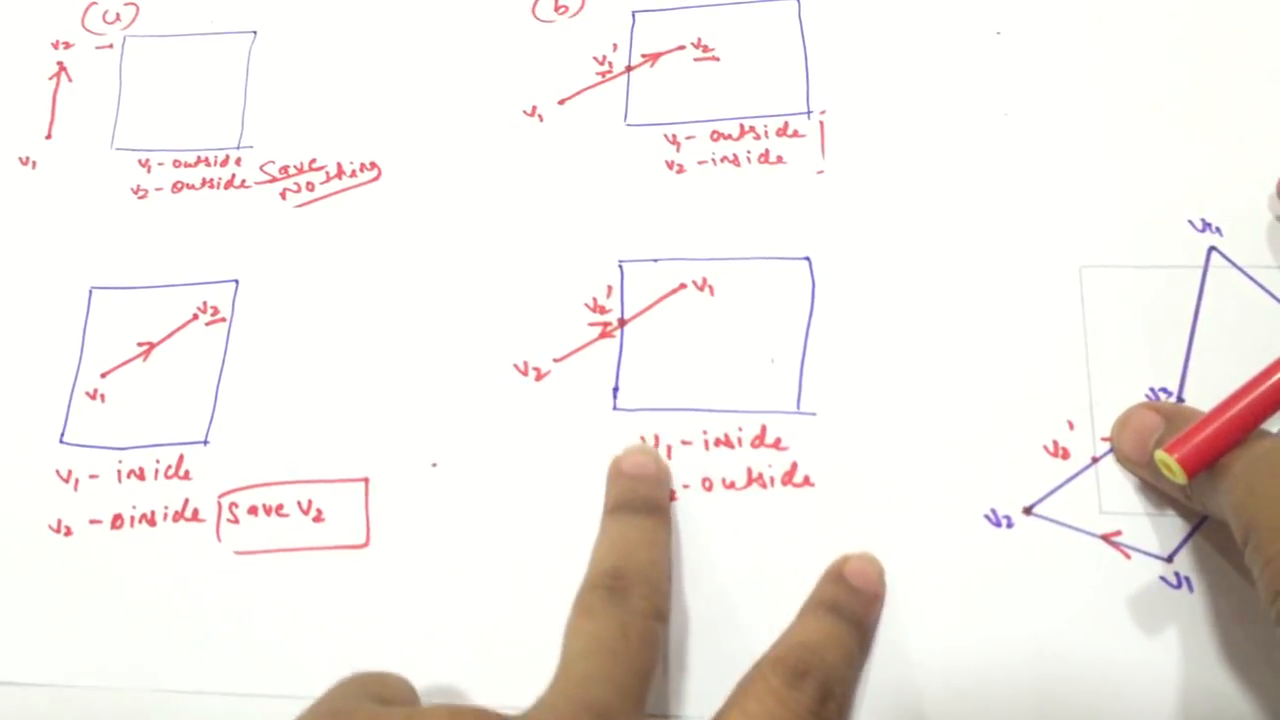 (a)
v2
v1
v1 - outside
v2 - outside
Save
Nothing
(b)
v1'
v2
v1
v1 - outside
v2 - inside
v2
v1
v1 - inside
v2 - inside
Save v2
v1
v2'
v2
v1 - inside
- outside
v4
v3
v2'
v2
v1